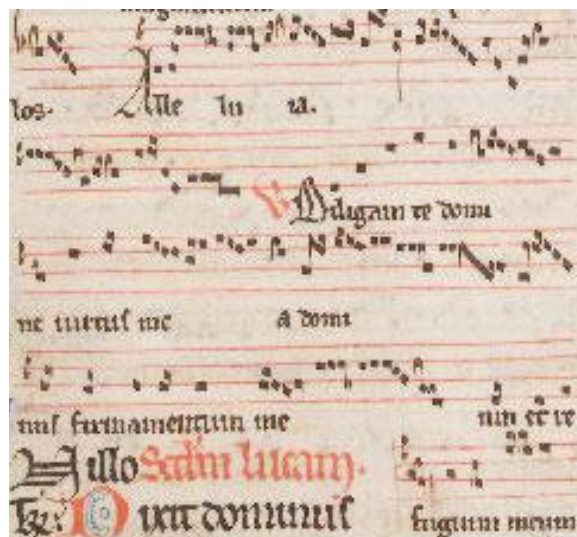 los. Alle lu ia.
V Diligam te domi
ne virtus me a domi
nus firmamentum me um et re
Illo Scdm lucam.
Dixit dominus fugium meum